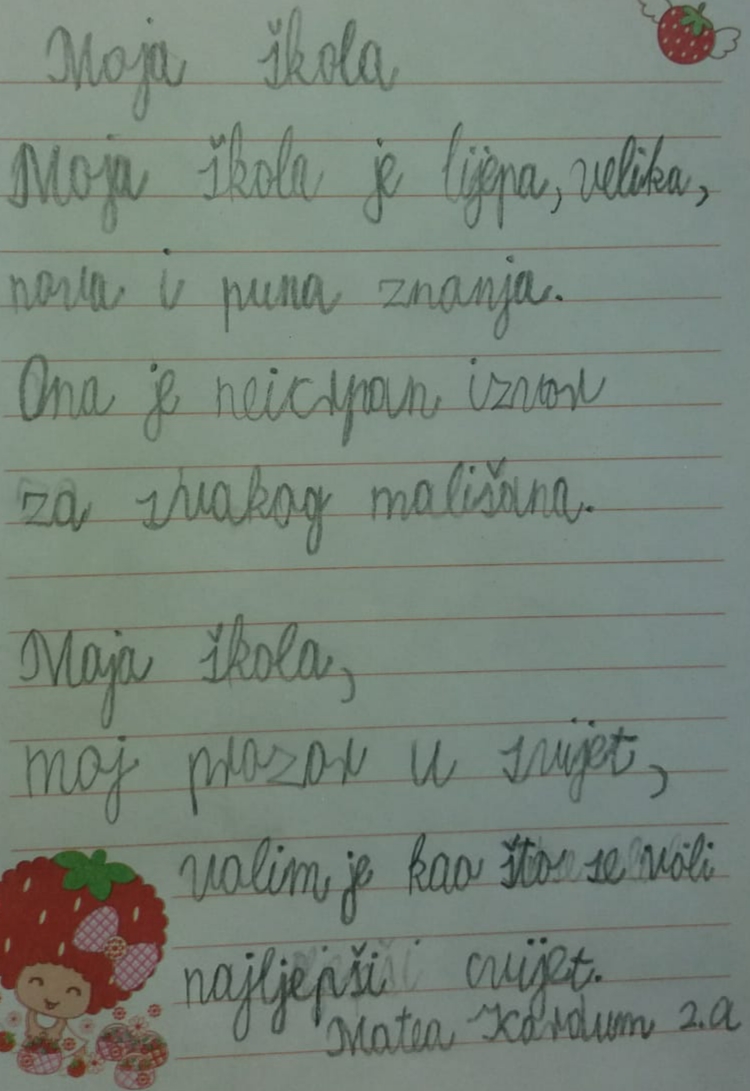 Moja škola
Moja škola je lijepa, velika,
nova i puna znanja.
Ona je neicrpan izvor
za svakog mališana.
Moja škola,
moj prozor u svijet,
volim je kao što se voli
najljepši cvijet.
Matea Kardum 2.a